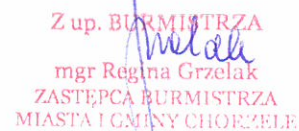 Z up. BURMISTRZA
mgr Regina Grzelak
ZASTĘPCA BURMISTRZA
MIASTA I GMINY CHORZELE